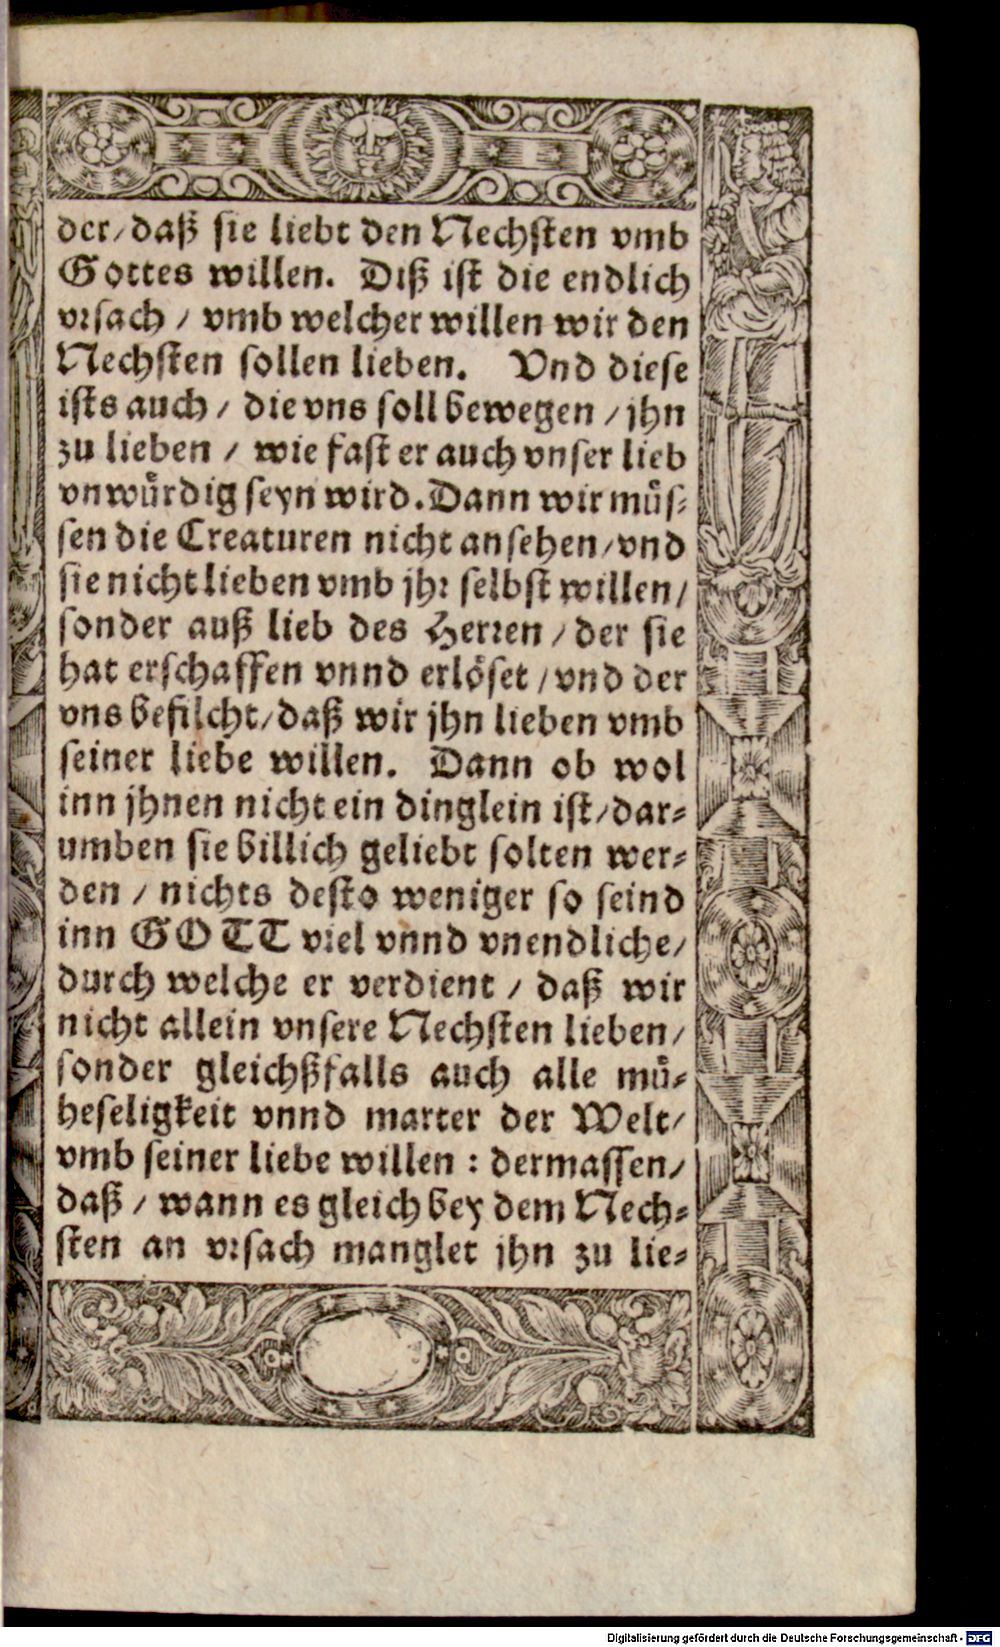 der/ daß sie liebt den Nechsten vmb
Gottes willen. Diß ist die endlich
vrsach / vmb welcher willen wir den
Nechsten sollen lieben. Vnd diese
ists auch / die vns soll bewegen / jhn
zu lieben / wie fast er auch vnser lieb
vnwürdig seyn wird. Dann wir müs-
sen die Creaturen nicht ansehen/ vnd
sie nicht lieben vmb jhr selbst willen/
sonder auß lieb des Herren / der sie
hat erschaffen vnnd erlöset / vnd der
vns befilcht/ daß wir jhn lieben vmb
seiner liebe willen. Dann ob wol
inn jhnen nicht ein dinglein ist/ dar-
umben sie billich geliebt solten wer-
den / nichts desto weniger so seind
inn GOTT viel vnnd vnendliche/
durch welche er verdient / daß wir
nicht allein vnsere Nechsten lieben/
sonder gleichßfalls auch alle mü-
heseligkeit vnnd marter der Welt/
vmb seiner liebe willen : dermassen/
daß / wann es gleich bey dem Nech-
sten an vrsach manglet jhn zu lie-
Digitalisierung gefördert durch die Deutsche Forschungsgemeinschaft - DFG